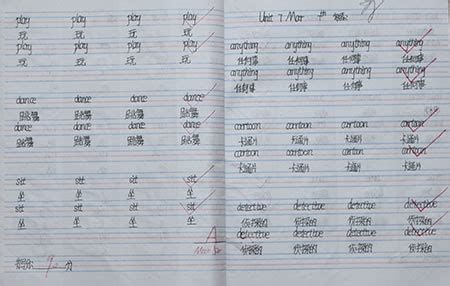 play play play play
玩 玩 玩 玩
play play play play
玩 玩 玩 玩
dance dance dance dance
跳舞 跳舞 跳舞 跳舞
dance dance dance dance
跳舞 跳舞 跳舞 跳舞
sit sit sit sit
坐 坐 坐 坐
sit sit sit sit
坐 坐 坐 坐
A
Unit 7 Mar
anything anything anything anything
任何事 任何事 任何事 任何事
anything anything anything anything
任何事 任何事 任何事 任何事
cartoon cartoon cartoon cartoon
卡通片 卡通片 卡通片 卡通片
cartoon cartoon cartoon cartoon
卡通片 卡通片 卡通片 卡通片
detective detective detective detective
侦探的 侦探的 侦探的 侦探的
detective detective detective detective
侦探的 侦探的 侦探的 侦探的